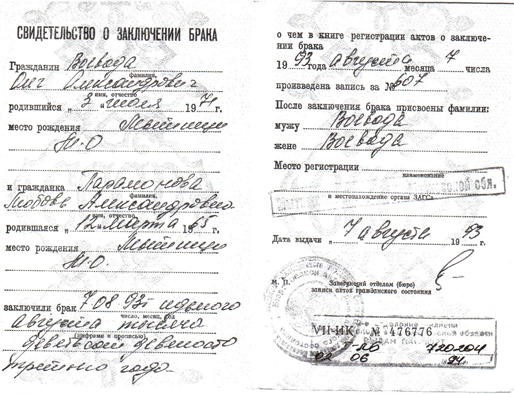 СВИДЕТЕЛЬСТВО О ЗАКЛЮЧЕНИИ БРАКА
Гражданин Воевода
фамилия
Олег Александрович
имя, отчество
родившийся „3 июля 1971
место рождения Мытищи
М.О
и гражданка Парамонова
фамилия
Любовь Александровна
имя, отчество
родившаяся „12 марта 1965
место рождения Мытищи
М.О.
заключили брак 7 08 93г седьмого
число, месяц, год
августа тысяча
(цифрами и прописью)
девятьсот девяносто
третьего года
о чем в книге регистрации актов о заключе-
нии брака
1993 года августа месяца 7 числа
произведена запись за № 607
После заключения брака присвоены фамилии:
мужу Воевода
жене Воевода
Место регистрации
наименование
обл.
и местонахождение органа ЗАГСа
Дата выдачи „7 августа 1993 г.
М. П. Заведующий отделом (бюро)
записи актов гражданского состояния
VII-ИК № 476776